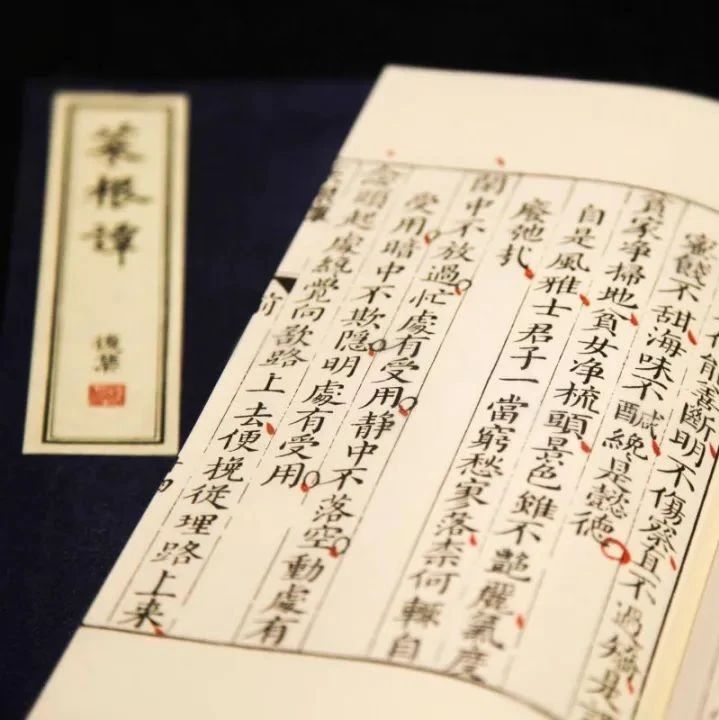 能善斷明不傷察直不過矯是
蜜餞不甜海味不醎纔是懿德
貧家净掃地貧女净梳頭景色雖不艷麗氣度
自是風雅士君子一當窮愁寥落柰何輙自
廢弛㢤
閒中不放過忙處有受用静中不落空動處有
受用暗中不欺隱明處有受用
念頭起處纔覺向欲路上去便挽從理路上来
前
菜根譚